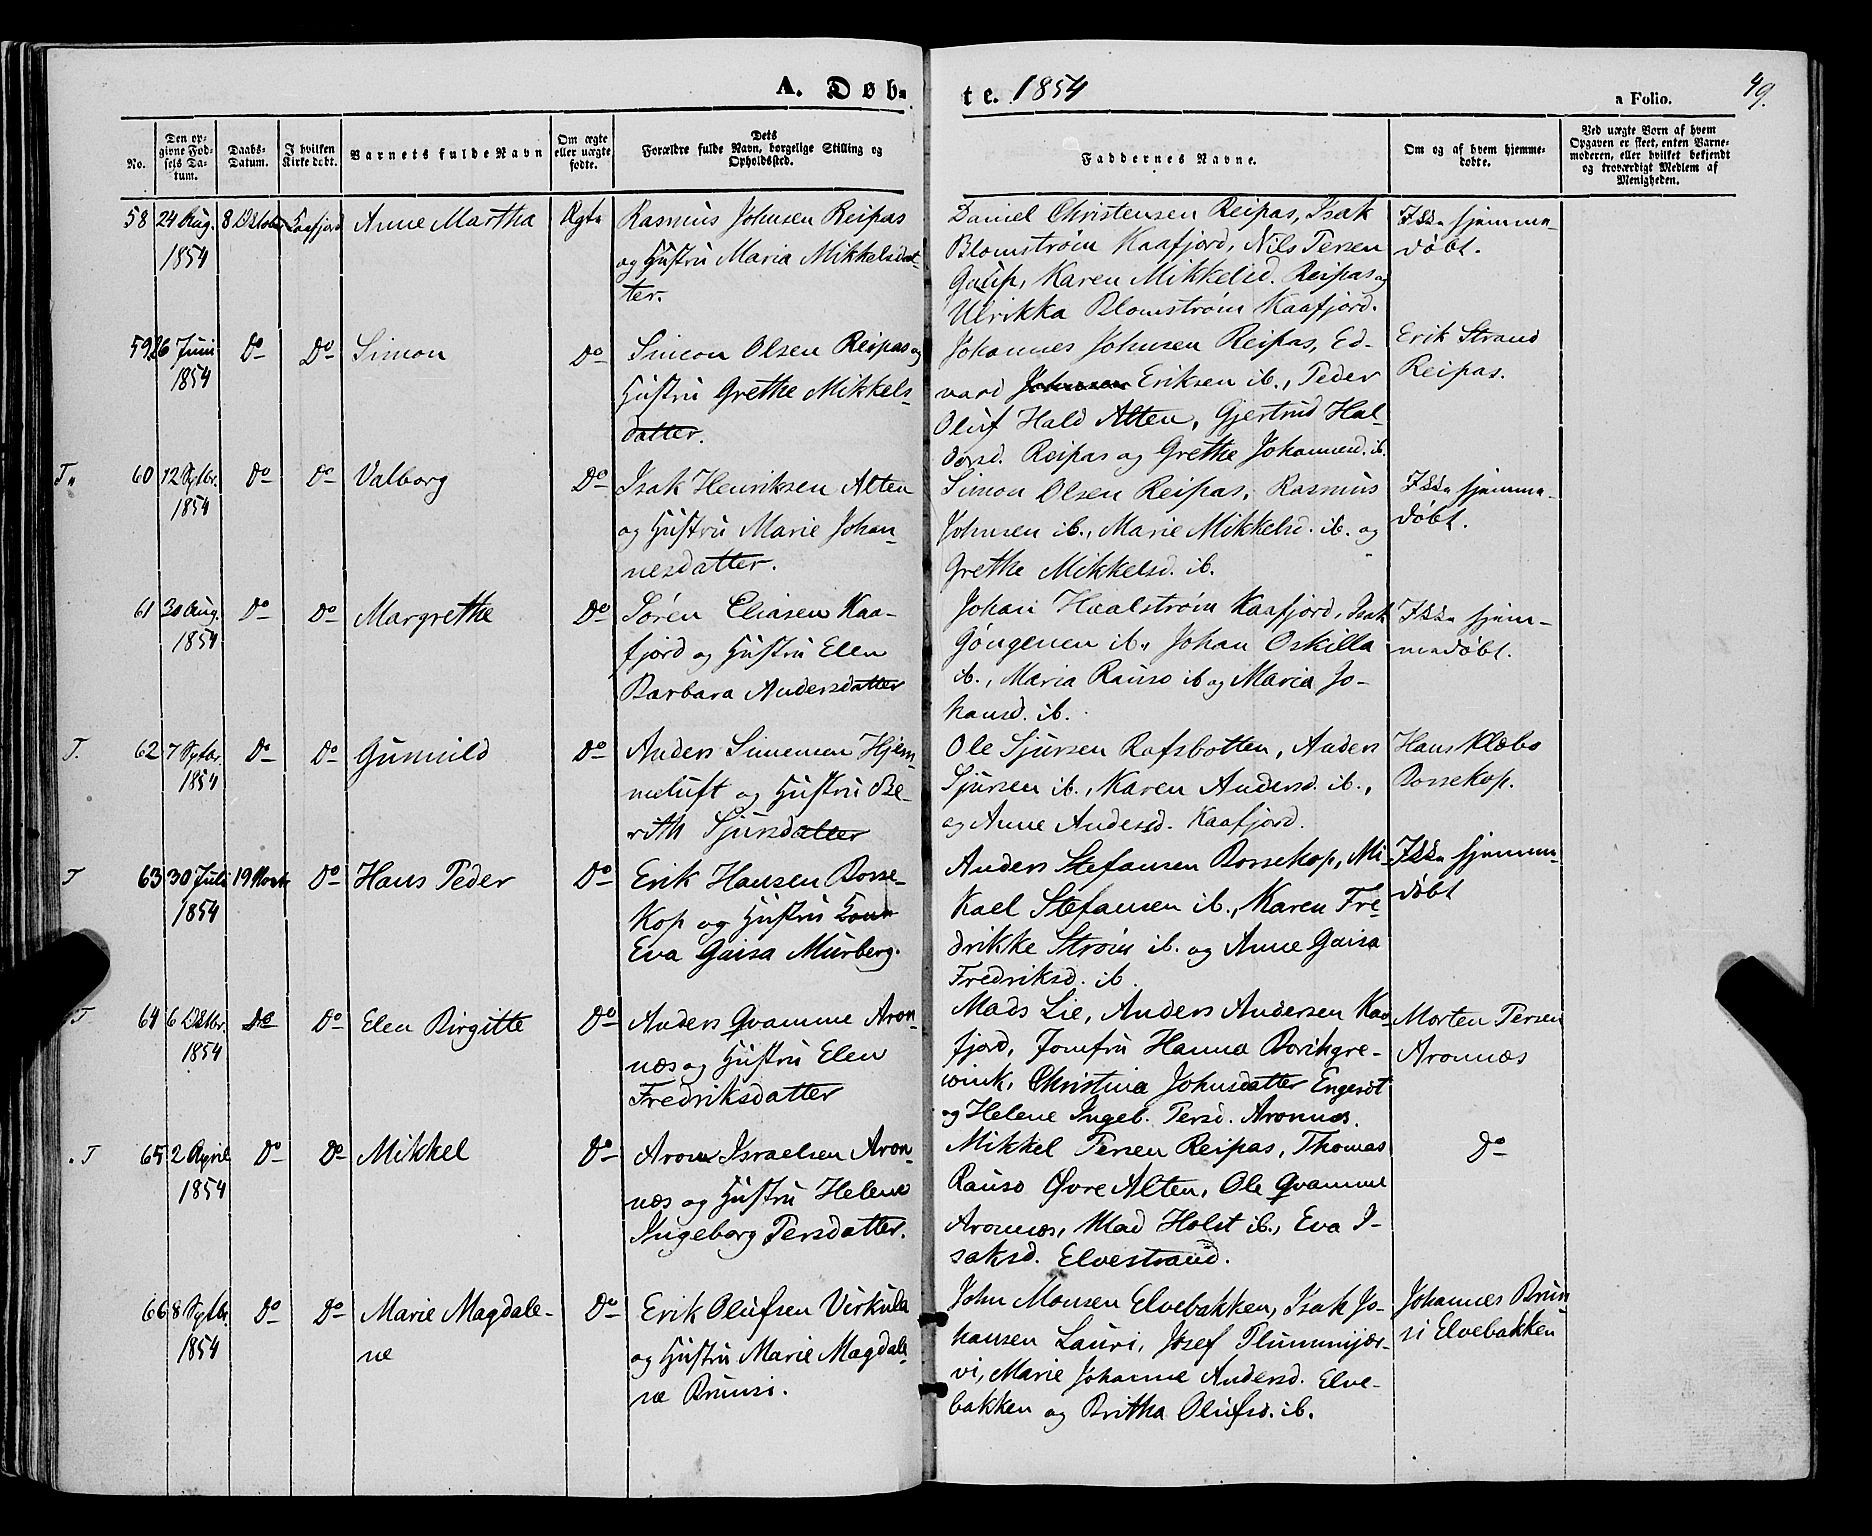 A. Døb-
te. 1854
a Folio.
49.
No.
Den op-
givne Fød-
sels Da-
tum.
Daabs-
Datum.
I hvilken
Kirke døbt.
Barnets fulde Navn
Om ægte
eller uægte
fødte.
Dets
Forældre fulde Navn, borgelige Stilling og
Opholdssted.
Faddernes Navne.
Om og af hvem hjemme-
døbte.
Ved uægte Børn af hvem
Opgaven er skeet, enten Barne-
moderen, eller hvilket bekjendt
og troværdigt Medlem af
Menigheden.
58 24 Aug. 8 Oktober Kaafjord Anne Martha Ægte
1854
Rasmus Johnsen Reipas
og Hustru Maria Mikkelsdat-
ter.
Daniel Christensen Reipas, Isak
Blomstrøm Kaafjord, Nils Persen
Karen Mikkelsd. Reipas og
Ulrikka Blomstrøm Kaafjord.
Ikke hjemme-
døbt.
59 26 Juni Do Do Simon Do
1854
Simon Olsen Reipas og
Hustru Grethe Mikkels-
datter.
Johannes Johnsen Reipas, Ed-
vard Johnsen Eriksen ib., Peder
Oluf Hald Alten, Gjertrud Hal-
dorsd. Reipas og Grethe Johannesd. ib.
Erik Strand
Reipas.
T. 60 12 Sptbr. Do Do Valborg Do
1854
Isak Henriksen Alten
og Hustru Marie Johan-
nesdatter.
Simon Olsen Reipas, Rasmus
Johnsen ib., Marie Mikkelsd. ib. og
Grethe Mikkelsd. ib.
Ikke hjemme-
døbt.
61 30 Aug. Do Do Margrethe Do
1854
Søren Eliasen Kaa-
fjord og Hustru Elen
Barbara Andersdatter
Johan Haalstrøm Kaafjord, Isak
Gøngenen ib., Johan Oskilla
ib., Maria Rauso ib og Maria Jo-
hansd. ib.
Ikke hjem-
medøbt.
T. 62 7 Sptbr. Do Do Gunnild Do
1854
Anders Simensen Hjem-
meluft og Hustru Be-
rith Sjursdatter
Ole Sjursen Rafsbotten, Anders
Sjursen ib., Karen Andersd. ib.,
og Anne Andersd. Kaafjord.
Hans Klæbo
Bossekop.
T 63 30 Juli 19 Novbr Do Hans Peder Do
1854
Erik Hansen Bosse-
kop og Hustru
Eva Gaisa Murberg.
Anders Stefansen Bossekop, Mi-
kael Stefansen ib., Karen Fre-
drikke Strøm ib. og Anne Gaisa
Fredriksd. ib.
Ikke hjemme-
døbt
T 64 6 Oktbr. Do Do Elen Birgitte Do
1854
Anders Qvamme Aron-
næs og Hustru Elen
Fredriksdatter
Mads Lie, Anders Andersen Kaa-
fjord, Jomfru Hanna Borchgre-
wink, Christina Johnsdatter Engerot
og Helene Ingeb. Persd. Aronnæs.
Morten Persen
Aronnæs
T 65 2 April Do Do Mikkel Do
1854
Aron Israelsen Aron-
næs og Hustru Helene
Ingeborg Persdatter.
Mikkel Persen Reipas, Thomas
Rauso Øvre Alten, Ole Qvamme
Aronnæs, Mad Holst ib., Eva I-
saksd. Elvestrand.
Do
66 8 Sptbr. Do Do Marie Magdale- Do
1854 ne
Erik Olufsen Virkula
og Hustru Marie Magdale-
næ Brunsi.
John Monsen Elvebakken, Isak Jo-
hansen Lauri, Josef Plummijær-
vi, Marie Johanne Andersd. Elve-
bakken og Britha Olufsd. ib.
Johannes Brun
si Elvebakken